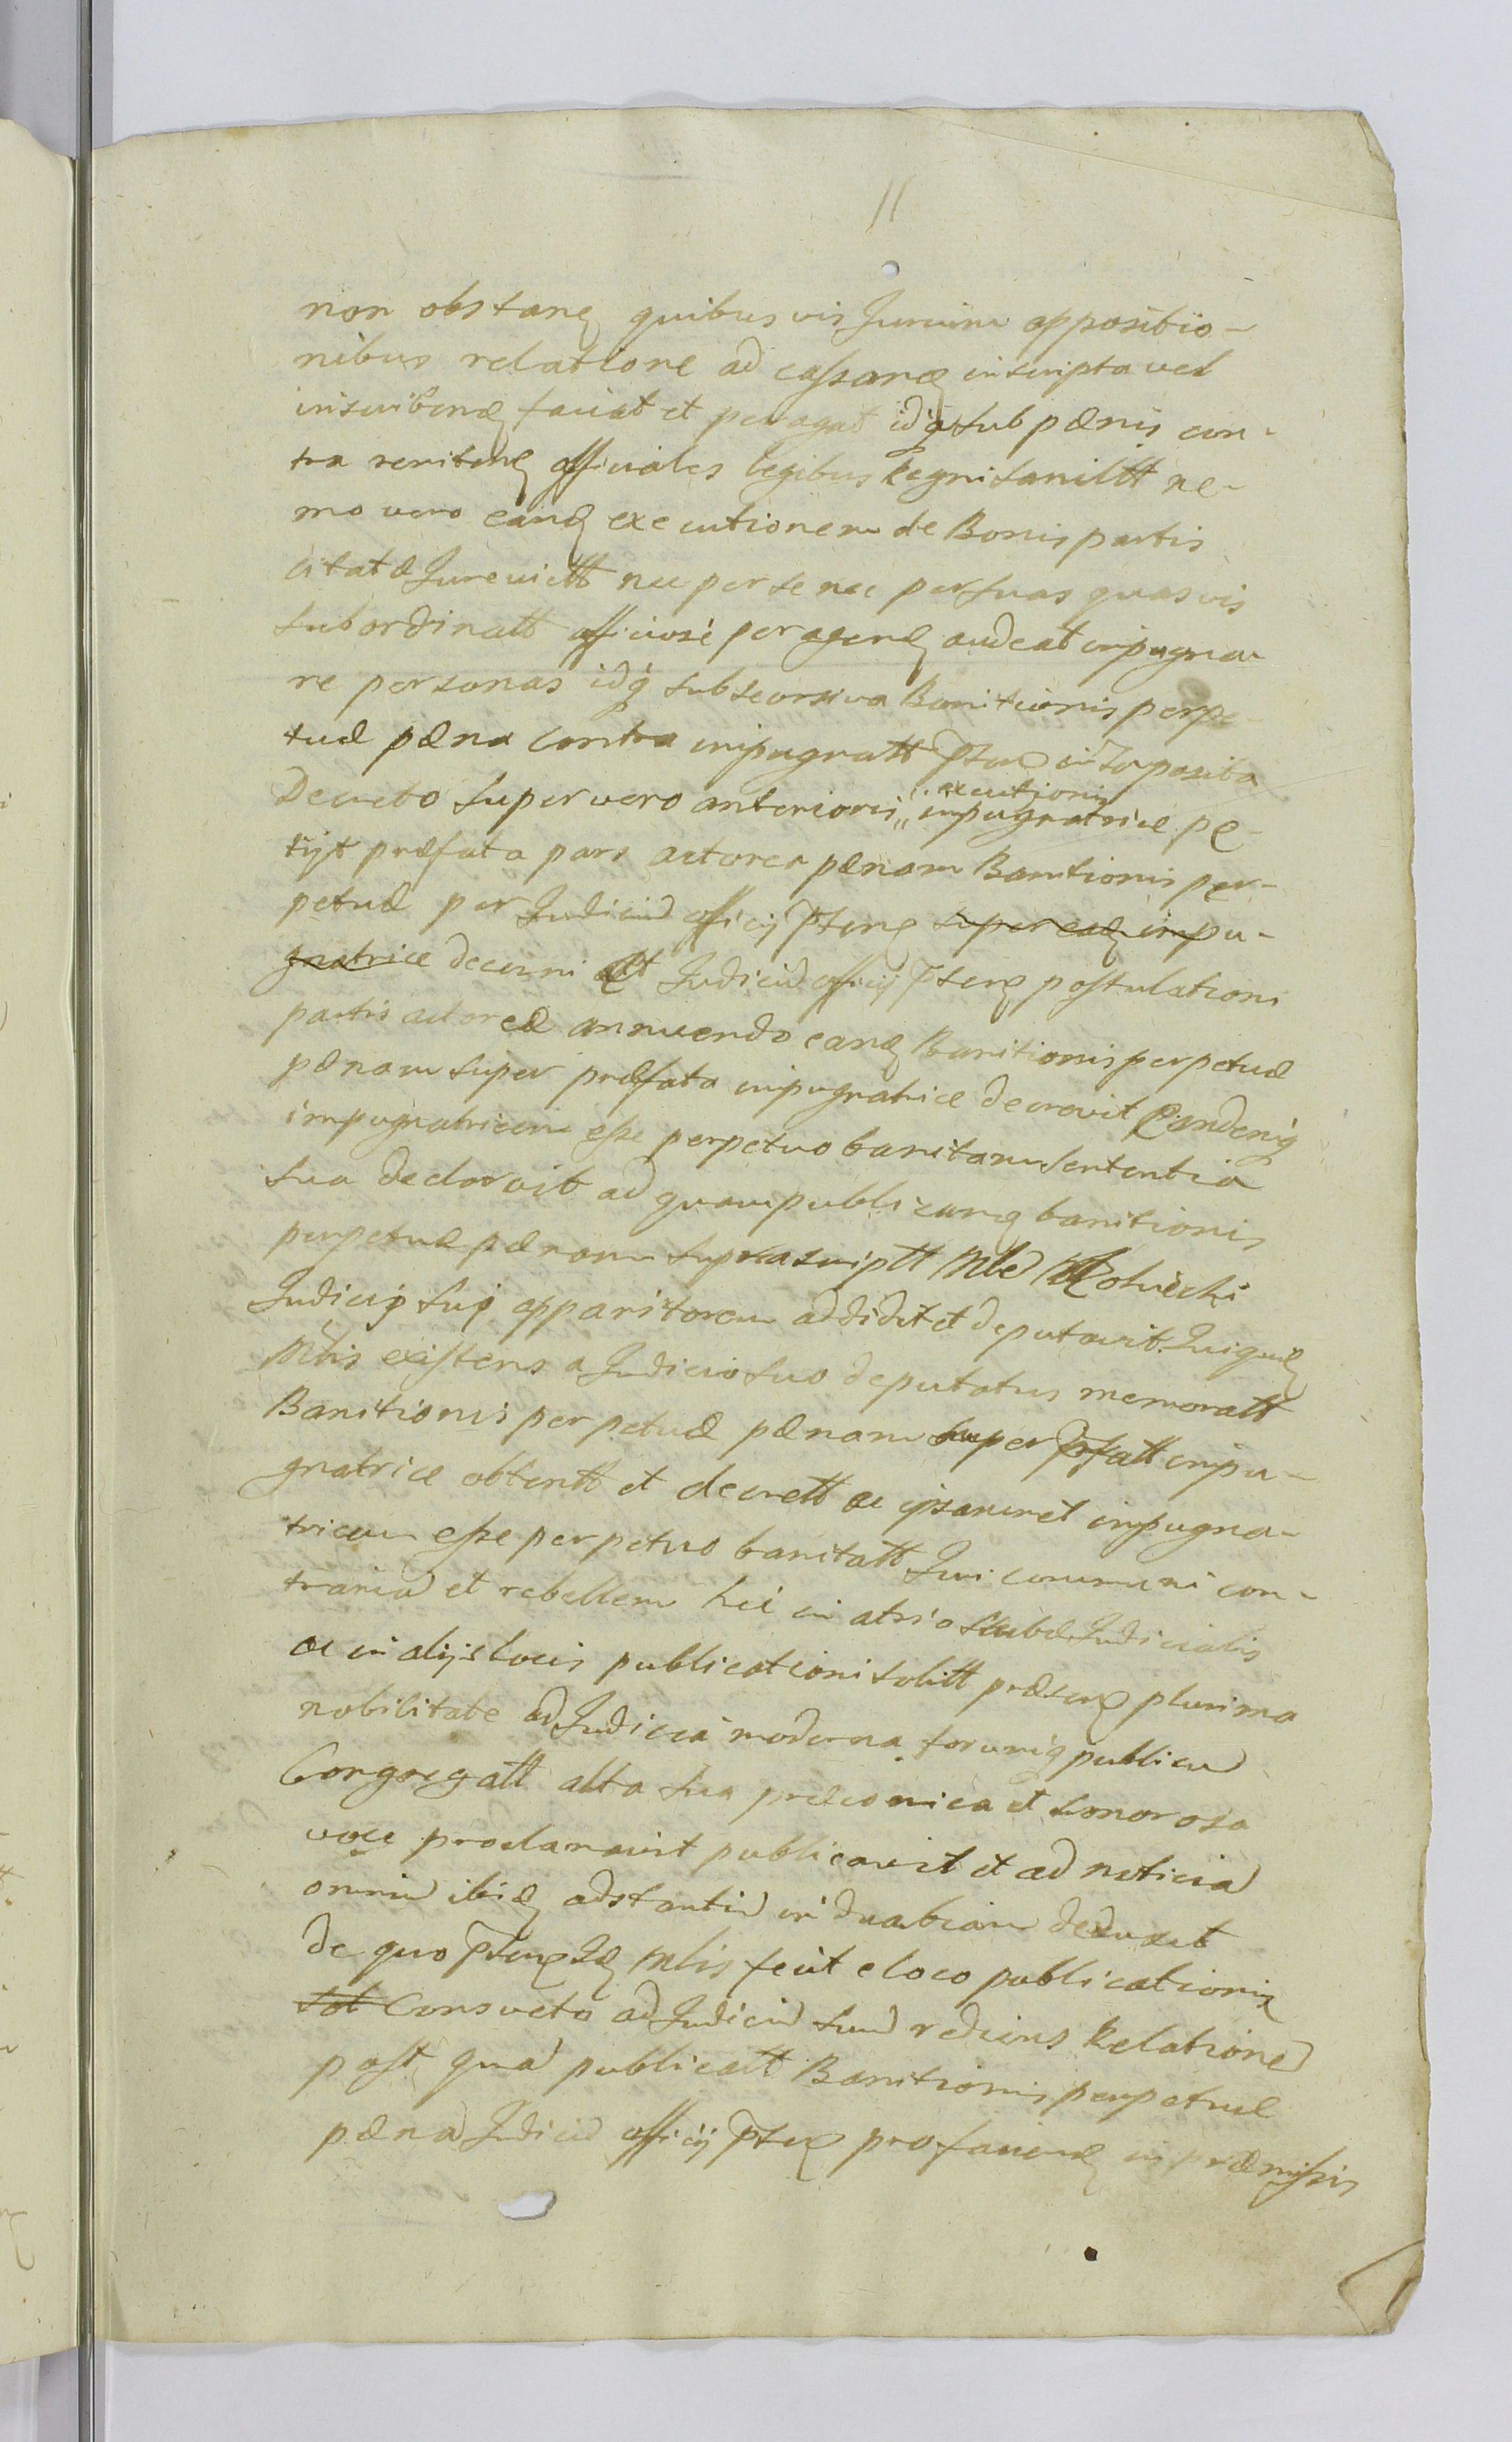 11
non obstanẹ quibusvis Jurium oppositio-
nibus relatione ad cassanḍ inscripta vel
inscribenḍ faciat et peragat idq sub pænis con-
tra renitenẹ officiales legibus Regni sancitt ne-
mo vero eanḍ executionem de Bonis partis
citatæ Jurevictt nec per se nec per suas quasvis
subordinatt officiosè peragenḍ audeat impugna-
re personas idq sub seorsiva Banitionis perpe-
tuæ pæna contra impugnatt p̄senẹ interposita
Decreto super vero anterioris executionis impugnatrice pe-
tijt præfata pars actorea pænam Banitionis per-
petuæ per Judiciũ officij p̄senẹ super eaḍ impu-
gnatrice decerni Et Judiciũ officij p̄senẹ postulationi
partis actoreæ annuendo eanḍ Banitionis perpetuæ
pænam super præfata impugnatrice decrevit Eandemq
impugnatricem esse perpetuo banitam sententia
sua declaravit ad quam publicanḍ banitionis
perpetuæ pænam suprascriptt Mlẽ Kotwicki
Judicij sui apparitorem addidit et deputavit. Quiquiḍ
Mlis existens a Judicio suo deputatus memoratt
Banitionis perpetuæ pænam super p̄fatt impu-
gnatrice obtentt et decrett ac ipsammet impugna-
tricem esse perpetuo banitatt Juri communi con-
trariã et rebellem hic in atrio stubæ Judicialis
ac in alijs locis publicationi solitt præsenẹ plurima
nobilitate ad Judicia moderna forumq publicũ
Congregatt alta sua præconica et sonorosa
voce proclamavit publicavit et ad noticiã
omniũ ibiḍ adstantiũ indubiam deduxit
de quo p̄senẹ Iḍ Mlis fecit e loco publicationis
sol Consveto ad Judiciũ suũ rediens Relationẽ
post quã publicatt Banitionis perpetuæ
pænã Judiciũ officij p̄senẹ pro facienḍ in præmissis